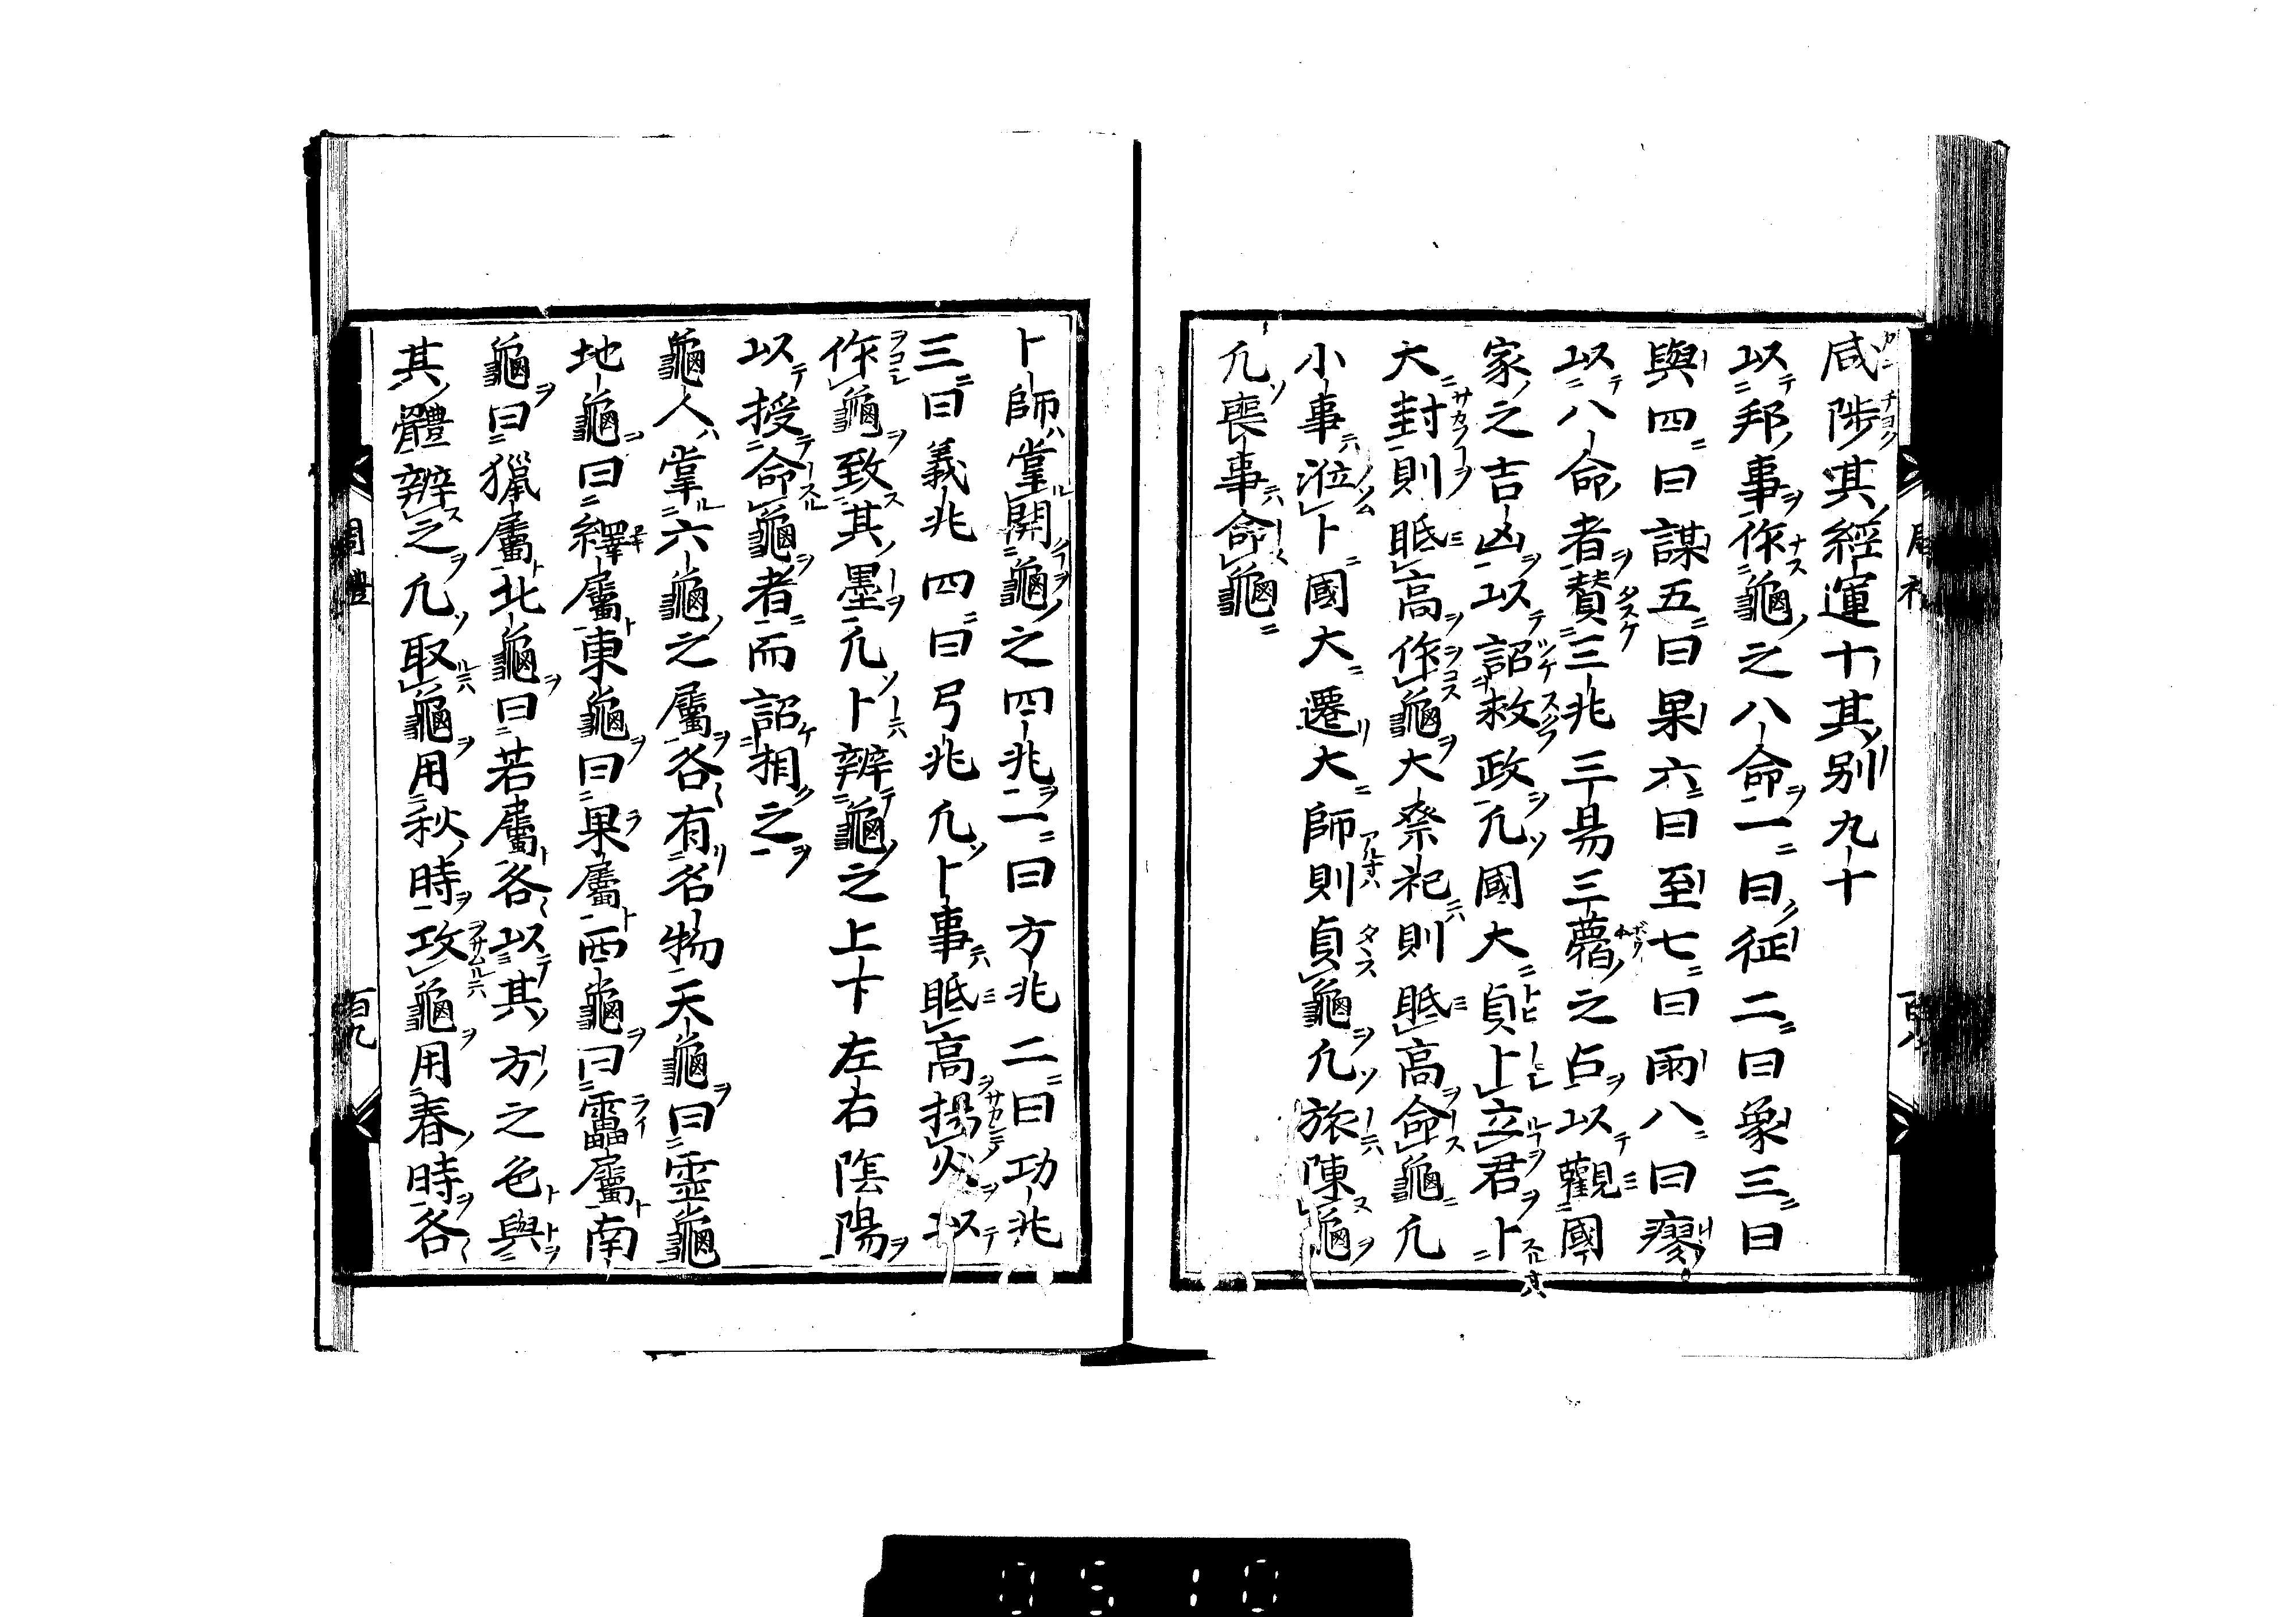 咸陟其經運十其別九十
以邦事作龜之八命一曰征二曰象三曰
與四曰謀五曰果六曰至七曰雨八曰瘳
以八命者賛三兆三易三蓍之占以觀國
家之吉凶以詔救政凢國大貞卜立君卜
大封則眡高作龜大祭祀則眡高命龜凢
小事涖卜國大遷大師則貞龜凢旅陳龜
凢喪事命龜
卜師掌開龜之四兆一曰方兆二曰功兆
三曰義兆四曰弓兆凢卜事眡高揚火以
作龜致其墨凢卜辨龜之上下左右陰陽
以授命龜者而詔相之
龜人掌六龜之屬各有名物天龜曰霊龜
地龜曰繹屬東龜曰果屬西龜曰靁屬南
龜曰獵屬北龜曰若屬各以其方之色與
其體辨之凢取龜用秋時攻龜用春時各
周禮
百九
0510